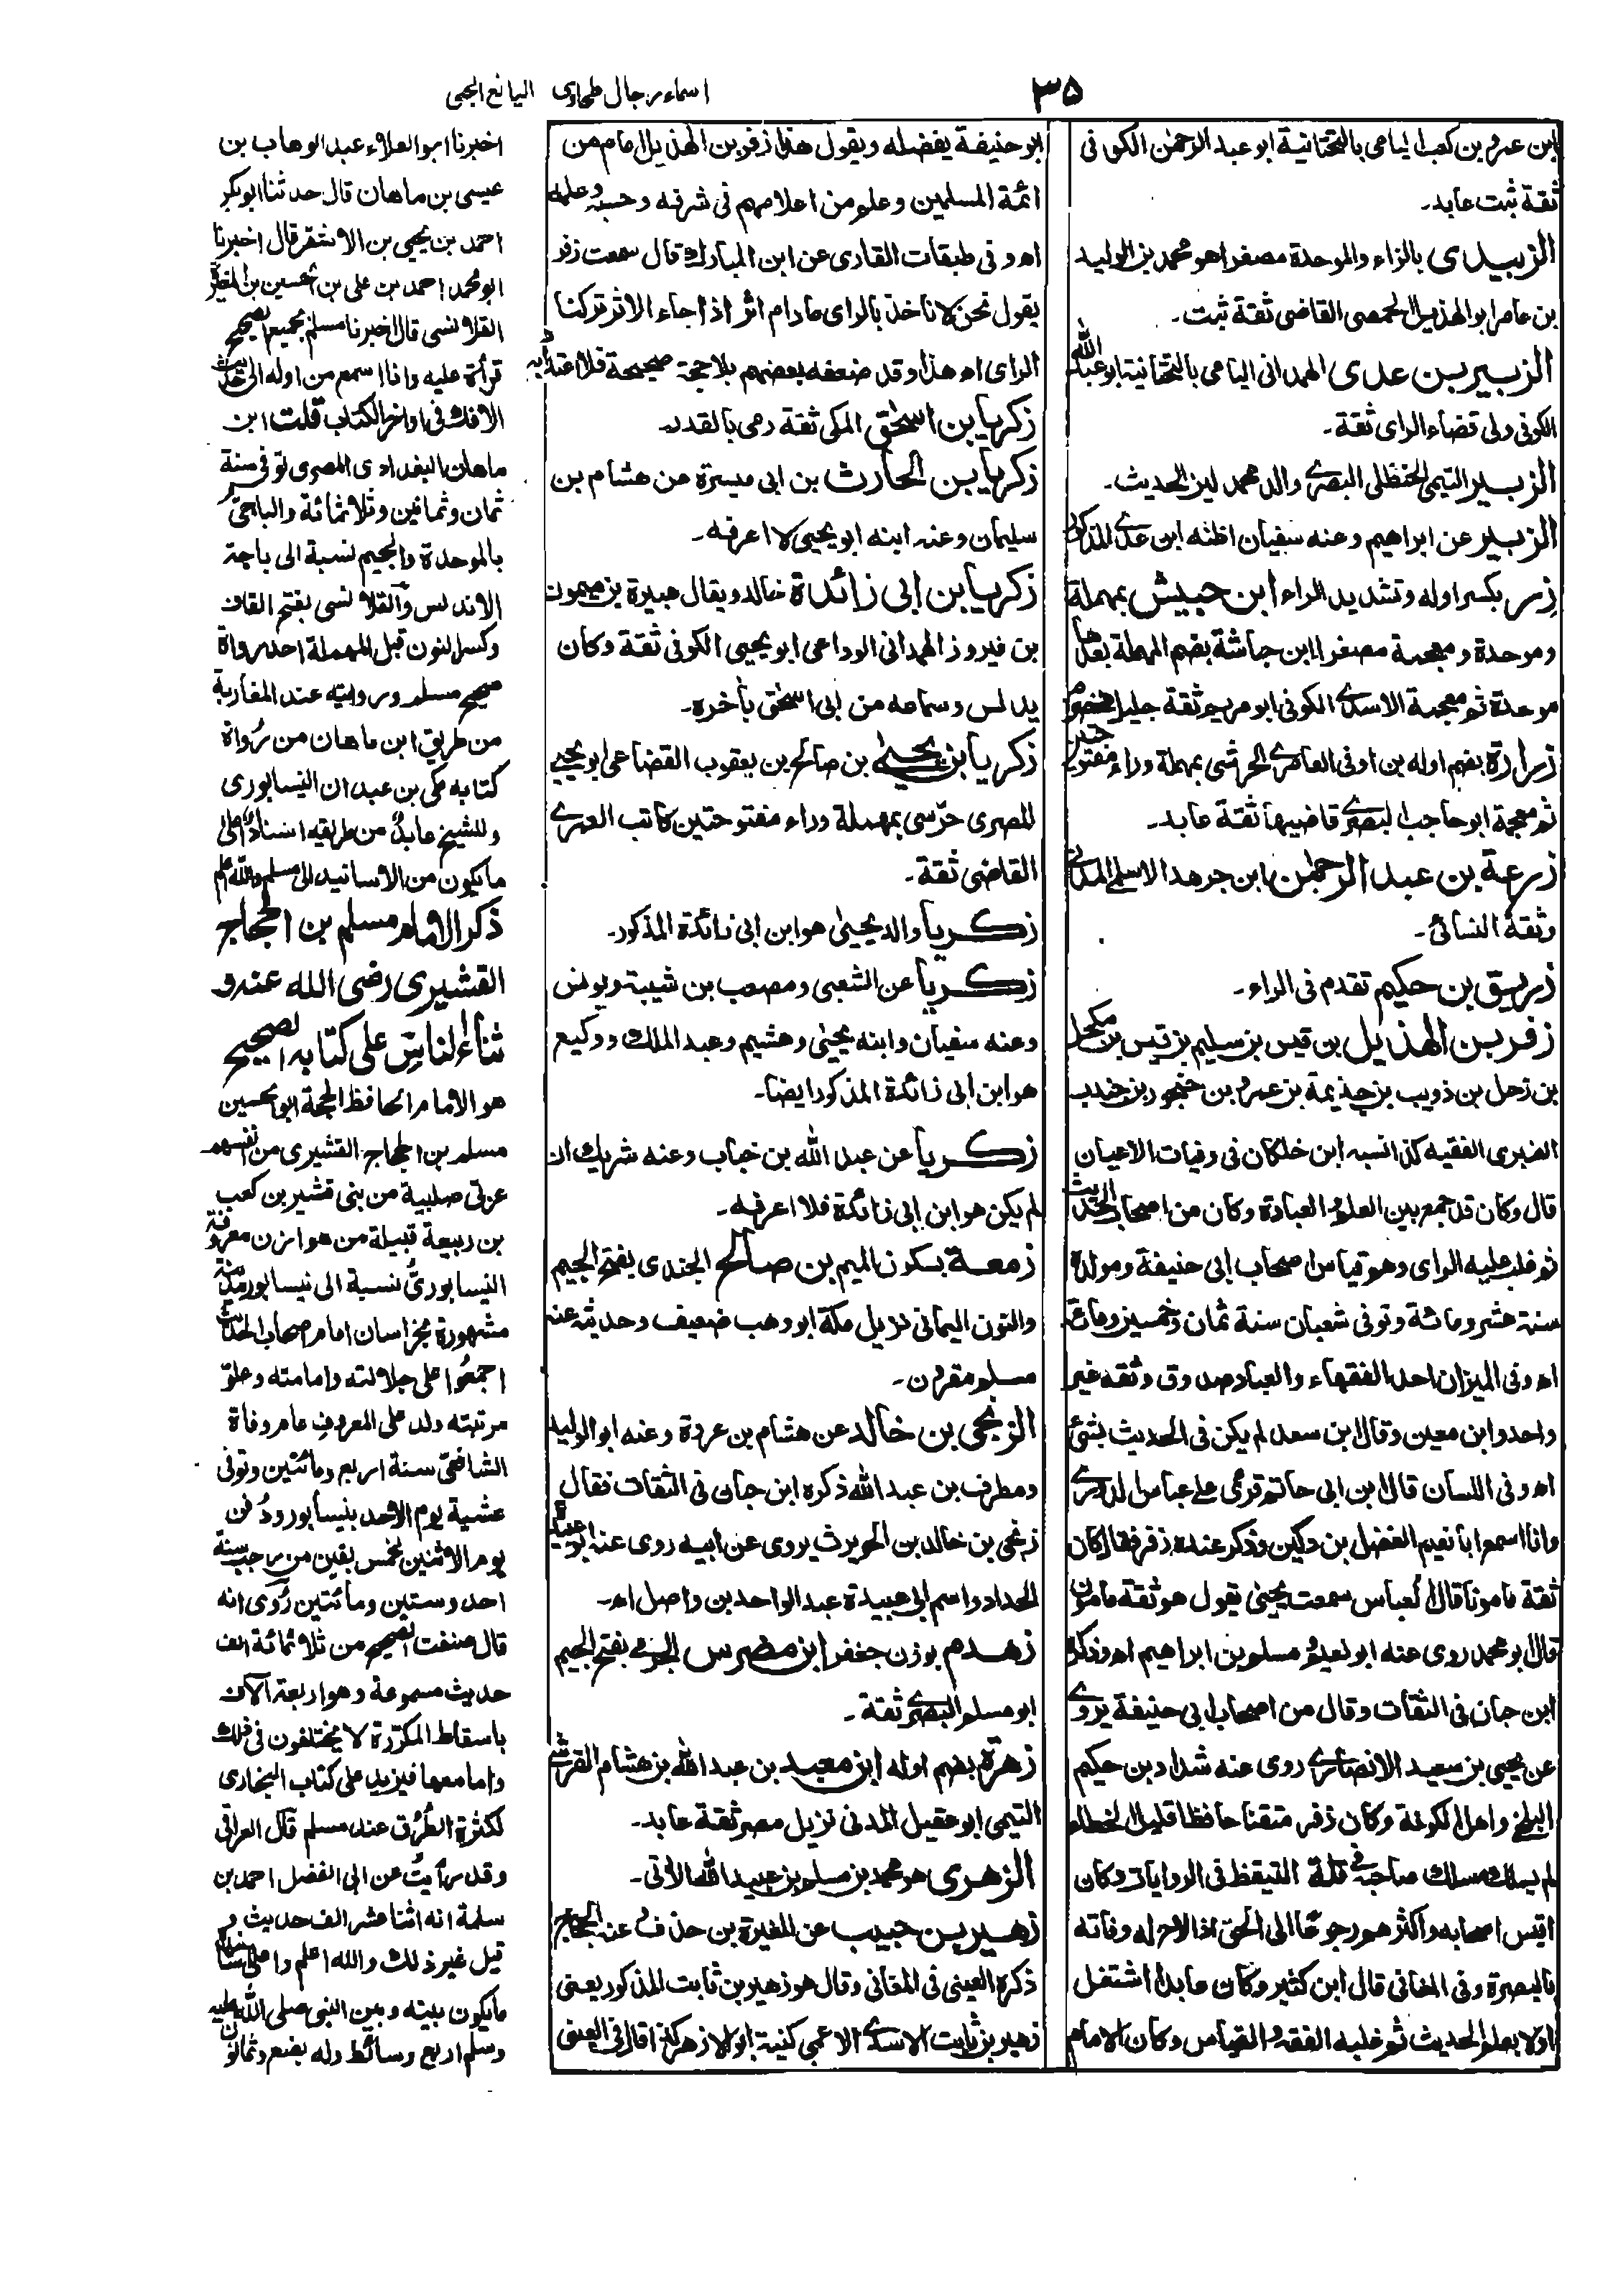 ٣٥
اسماء رجال طحاوی الیانع الجنی
ابن عمرو بن كعب اليامي بالتحتانية ابو عبد الرحمٰن الكوفى
ثقة ثبت عابد۔
الزبيدى بالزاء والموحدة مصغرا هو محمد بن الوليد
بن عامر ابو الهذيل الحمصى القاضى ثقة ثبت۔
الزبير بن عدى الهمدانى اليامى بالتحتانية ابو عبد الله
الكوفى ولى قضاء الراى ثقة۔
الزبير التيمى الحنظلى البصرے والد محمد لين الحديث۔
الزبير عن ابراهيم وعنه سفيان اظنه ابن عدے المذكور
زر بكسر اوله وتشديد الراء ابن حبيش بمهملة
وموحدة ومعجمة مصغرا ابن حباشة بضم المهملة بعدها
موحدة ثم معجمة الاسدے الكوفى ابو مريم ثقة جليل مخضرم
زرارة بضم اوله بن اوفى العامرے الحرشى بمهملة وراء مفتوحتين
ثم معجمة ابو حاجب البصرے قاضيها ثقة عابد۔
زرعة بن عبد الرحمٰن ابن جرهد الاسلمے المدنى
وثقة النسائى۔
زريق بن حكيم تقدم فى الراء۔
زفر بن الهذيل بن قيس بن سليم بن قيس بن مكمل
بن ذهل بن ذويب بن جذيمة بن عمرو بن حنجور بن جندب
العنبرى الفقيه كذا نسبه ابن خلكان فى وفيات الاعيان
قال وكان قد جمع بين العلم والعبادة وكان من اصحاب الحديث
ثم غلب عليه الراى وهو قياس اصحاب ابى حنيفة ومولده
سنة عشر ومائة وتوفى شعبان سنة ثمان وخمسين ومائة
اه وفى الميزان احد الفقهاء والعباد صدوق وثقه غير
واحد وابن معين وقال ابن سعد لم يكن فى الحديث بشئ
اه وفى اللسان قال ابن ابى حاتم قرئ على عباس الدورے
وانا اسمع ابا نعيم الفضل بن دكين وذكر عنده زفر فقال كان
ثقة مامونا قال العباس سمعت يحيى يقول هو ثقة مامون
قال ابو محمد روى عنه ابو نعيم ومسلم بن ابراهيم اه وذكره
ابن حبان فى الثقات وقال من اصحاب ابى حنيفة يروے
عن يحيى بن سعيد الانصارے روى عنه شداد بن حكيم
البلخى واهل الكوفة وكان زفر متقنا حافظا قليل الخطاء
لم يسلك مسلك صاحبه فى قلة التيقظ فى الروايات وكان
اقيس اصحابه واكثرهم رجوعا الى الحق اذا لاح له وفاته
بالبصرة وفى المغانى قال ابن كثير وكان عابدا اشتغل
اولا بعلم الحديث ثم غلبه الفقه والقياس وكان الامام
ابو حنيفة يفضله ويقول هذا زفر بن الهذيل امام من
ائمة المسلمين وعلم من اعلامهم فى شرفه وحسبه وعلمه
اه وفى طبقات القارى عن ابن المبارك قال سمعت زفر
يقول نحن لا ناخذ بالراى مادام اثر اذا جاء الاثر تركنا
الراى اه هذا وقد ضعفه بعضهم بلا حجة صحيحة فلا اعتداد به
زكريا بن اسحٰق المكى ثقة رمى بالقدر۔
زكريا بن الحارث بن ابى ميسرة عن هشام بن
سليمان وعنه ابنه ابو يحيى لا اعرفه۔
زكريا بن ابى زائدة خالد ويقال هبيرة بن ميمون
بن فيروز الهمدانى الوداعى ابو يحيى الكوفى ثقة وكان
يدلس وسماعه من ابى اسحٰق باخره۔
زكريا بن يحيىٰ بن صالح بن يعقوب القضاعى ابو يحيے
المصرى حرسى بمهملة وراء مفتوحتين كاتب العمرے
القاضى ثقة۔
زكريا والد يحيىٰ هو ابن ابى زائدة المذكور۔
زكريا عن الشعبى ومصعب بن شيبة ويونس
وعنه سفيان وابنه يحيىٰ وهشيم وعبد الملك ووكيع
هو ابن ابى زائدة المذكور ايضا۔
زكريا عن عبد الله بن خباب وعنه شريك ان
لم يكن هو ابن ابى زائدة فلا اعرفه۔
زمعة بسكون الميم بن صالح الجندى بفتح الجيم
والنون اليمانى نزيل مكة ابو وهب ضعيف وحديثه عند
مسلم مقرون۔
الزنجى بن خالد عن هشام بن عروة وعنه ابو الوليد
ومطرف بن عبد الله ذكره ابن حبان فى الثقات فقال
زنجى بن خالد بن الحويرث يروى عن ابيه روى عنه ابو عبيدة
الحداد واسم ابى عبيدة عبد الواحد بن واصل اه۔
زهدم بوزن جعفر ابن مضرس الجرمے بفتح الجيم
ابو مسلم البصرے ثقة۔
زهرة بضم اوله ابن معبد بن عبد الله بن هشام القرشے
التيمى ابو عقيل المدنى نزيل مصر ثقة عابد۔
الزهرى هو محمد بن مسلم بن عبيد الله الاتى۔
زهير بن حبيب عن المغيرة بن حذف وعنه الحجاج
ذكره العينى فى المغانى وقال هو زهير بن ثابت المذكور يعنى
زهير بن ثابت الاسدے الاعمى كنيته ابو الازهر كذا قال فى العينى
اخبرنا ابو العلاء عبد الوهاب بن
عيسى بن ماهان قال حدثنا ابو بكر
احمد بن يحيى بن الاشقر قال اخبرنا
ابو محمد احمد بن على بن الحسين بن المغيرة
القلانسى قال اخبرنا مسلم بجميع الصحيح
قرأة عليه وانا اسمع من اوله الى حديث
الافك فى اواخر الكتاب قلت ابن
ماهان البغدادى المصرى توفى سنة
ثمان وثمانين وثلاثمائة والباجى
بالموحدة والجيم نسبة الى باجة
الاندلس والقلانسى بفتح القاف
وكسر النون قبل المهملة احد رواة
صحيح مسلم وروايته عند المغاربة
من طريق ابن ماهان من رواة
كتابه مكى بن عبدان النيسابورى
وللشيخ عابد من طريقه اسناد اعلى
مايكون من الاسانيد الى مسلم والله اعلم
ذكر الامام مسلم بن الحجاج
القشيرى رضى الله عنه و
ثناء الناس على كتابه الصحيح
هو الامام الحافظ الحجة ابو الحسين
مسلم بن الحجاج القشيرى من انفسهم
عربى صلبية من بنى قشير بن كعب
بن ربيعة قبيلة من هوازن معروفة
النيسابورى نسبة الى نيسابور مدينة
مشهورة بخراسان امام اصحاب الحديث
اجمعوا على جلالته وامامته وعلو
مرتبته ولد على المعروف عام وفاة
الشافعى سنة اربع ومائتين وتوفى
عشية يوم الاحد بنيسابور ودفن
يوم الاثنين لخمس بقين من رجب سنة
احد وستين ومائتين روى انه
قال صنفت الصحيح من ثلاثمائة الف
حديث مسموعة وهو اربعة آلاف
باسقاط المكررة لا يختلفون فى ذلك
واما معها فيزيد على كتاب البخارى
لكثرة الطرق عند مسلم قال العراقى
وقد رأيت عن ابى الفضل احمد بن
سلمة انه اثنا عشر الف حديث و
قيل غير ذلك والله اعلم واعلى اسناد
مايكون بينه وبين النبى صلى الله عليه
وسلم اربع وسائط وله بضع وثمانون